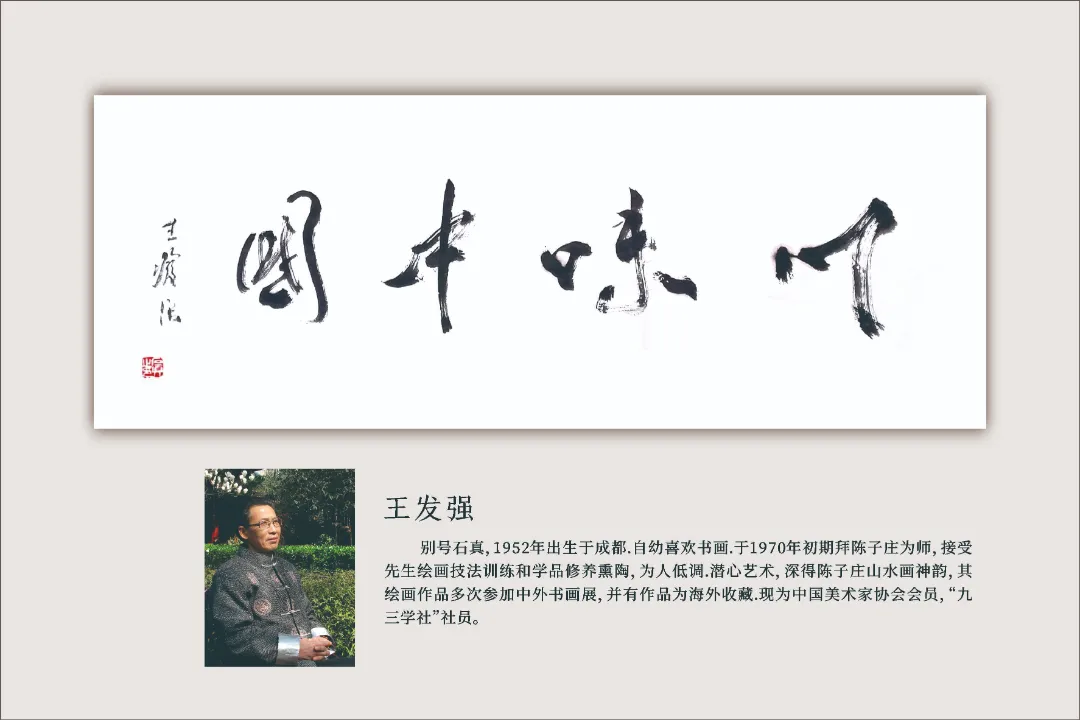 川味中國
王發強
王发强
别号石真, 1952年出生于成都.自幼喜欢书画.于1970年初期拜陈子庄为师, 接受
先生绘画技法训练和学品修养熏陶, 为人低调.潜心艺术, 深得陈子庄山水画神韵, 其
绘画作品多次参加中外书画展, 并有作品为海外收藏.现为中国美术家协会会员, “九
三学社”社员。